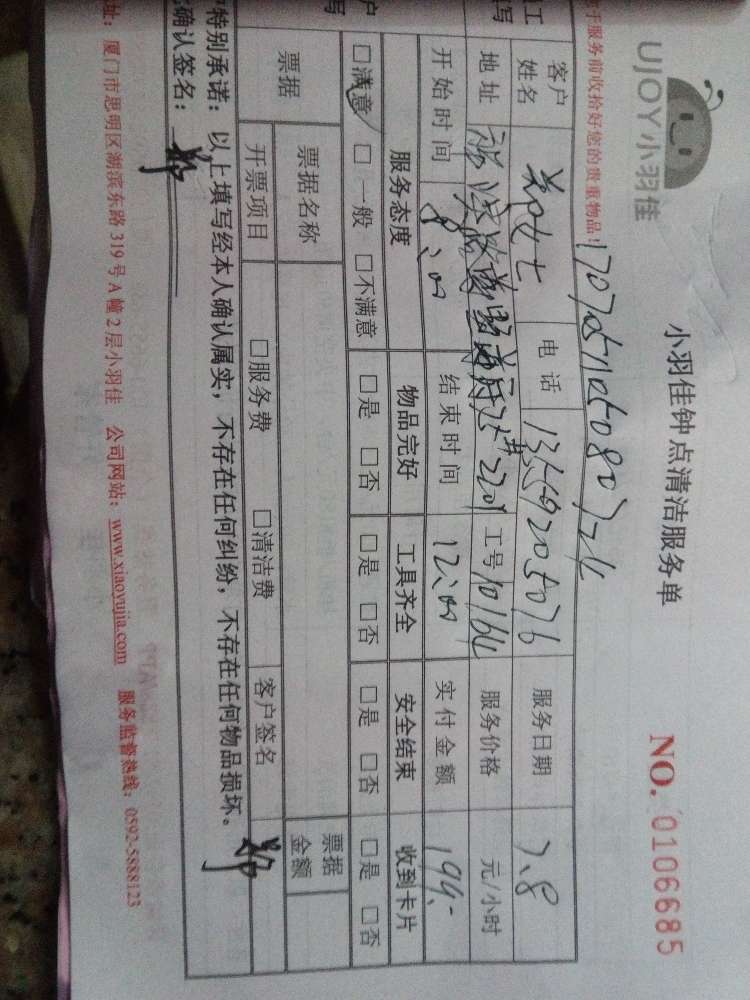 UJOY小羽佳
小羽佳钟点清洁服务单
NO. 0106685
于服务前收拾好您的贵重物品!
客户姓名 郑女士 电话 13559205076 服务日期 7.8
地址 25#2201 工号 10164 服务价格 元/小时
开始时间 8:00 结束时间 12:00 实付金额 199.-
服务态度 物品完好 工具齐全 安全结束 收到卡片
□满意 □一般 □不满意 □是 □否 □是 □否 □是 □否 □是 □否
票据 票据名称 票据金额
开票项目 □服务费 □清洁费 客户签名 郑
特别承诺:以上填写经本人确认属实,不存在任何纠纷,不存在任何物品损坏。
确认签名: 郑
址:厦门市思明区湖滨东路319号A幢2层小羽佳 公司网站:www.xiaoyujia.com 服务监督热线:0592-5888123